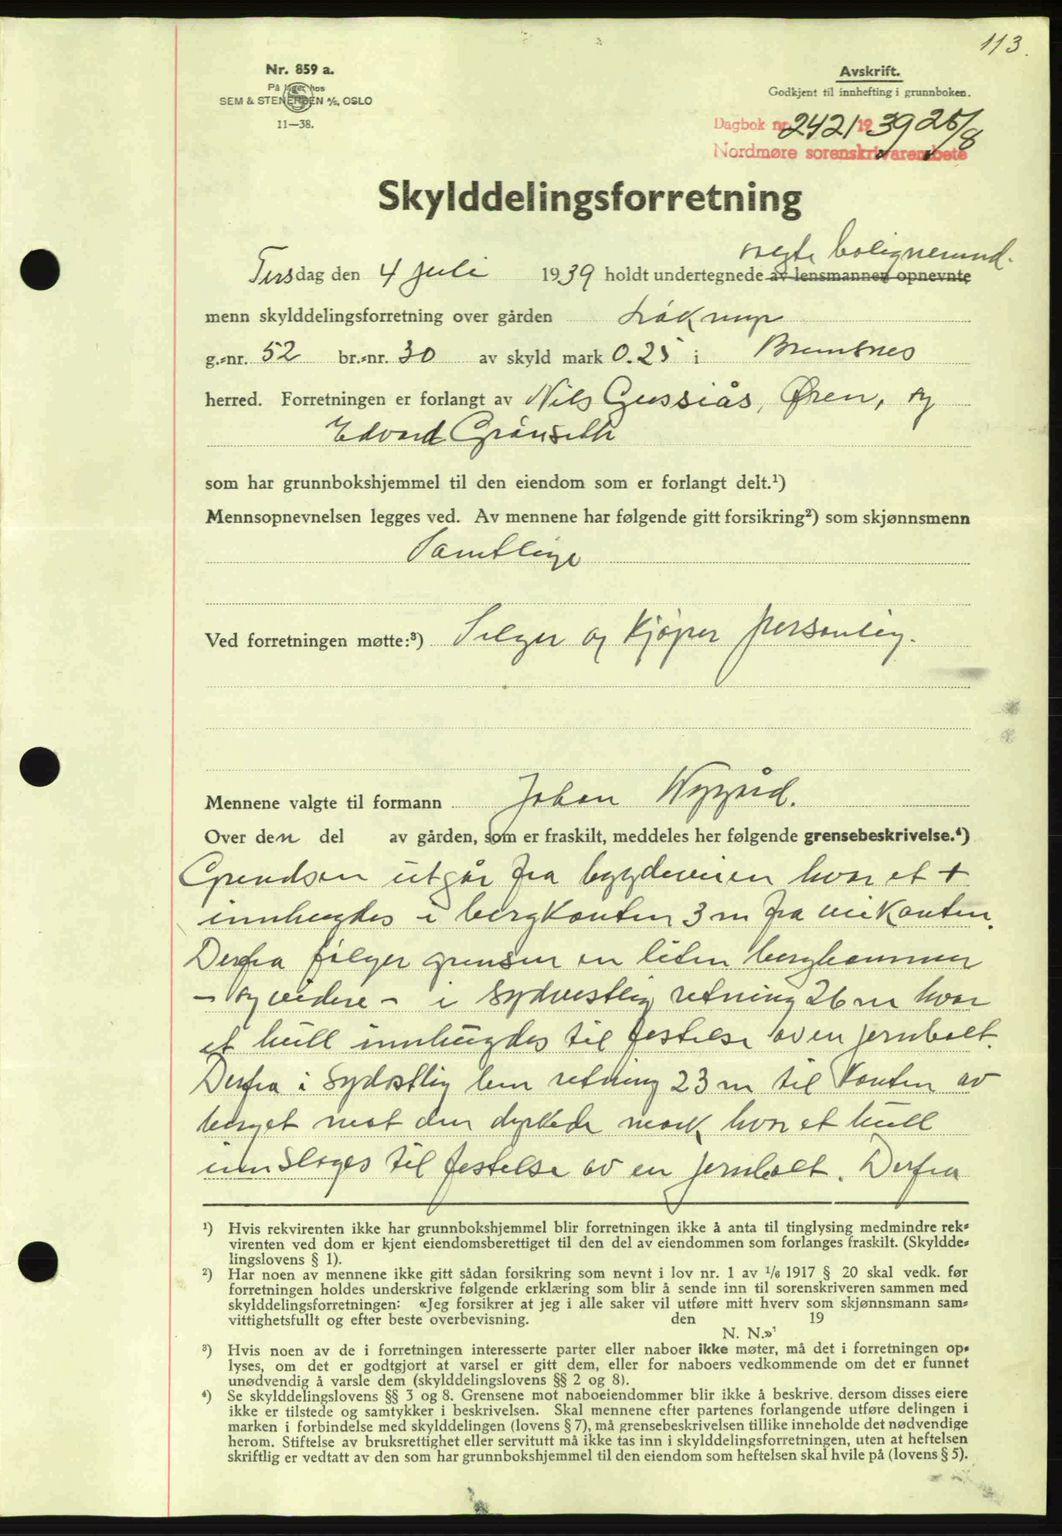 113.
Nr. 859 a.
På lager hos
SEM & STENERSEN A/S, OSLO
11—38.
Avskrift.
Godkjent til innhefting i grunnboken.
Dagbok nr. 2421 1939 25/8
Nordmøre sorenskrivarembete
Skylddelingsforretning
valgte
Tirsdag den 4 juli 1939 holdt undertegnede av lensmannen opnevnte
menn skylddelingsforretning over gården
g.-nr. 52 br.-nr. 30 av skyld mark 0.25 i Bremsnes
herred. Forretningen er forlangt av Nils Gussiås, Øren, og
Edvard Grönseth
som har grunnbokshjemmel til den eiendom som er forlangt delt.¹)
Mennsopnevnelsen legges ved. Av mennene har følgende gitt forsikring²) som skjønnsmenn
Samtlige
Ved forretningen møtte:³) Selger og Kjøper personlig.
Mennene valgte til formann Johan
Over den del av gården, som er fraskilt, meddeles her følgende grensebeskrivelse.⁴)
Grendsen utgår fra bygdeveien hvor et +
innhugdes i bergkanten 3 m fra veikanten.
Derfra følger grensen en liten berghammer
– og videre – i sydvestlig retning 26 m hvor
et hull innhugdes til festelse av en jernbolt.
Derfra i sydøstlig retning 23 m til kanten av
berget mot den dyrkede mark hvor et hull
innslages til festelse av en jernbolt. Derfra
¹) Hvis rekvirenten ikke har grunnbokshjemmel blir forretningen ikke å anta til tinglysing medmindre rek-
virenten ved dom er kjent eiendomsberettiget til den del av eiendommen som forlanges fraskilt. (Skyldde-
lingslovens § 1).
²) Har noen av mennene ikke gitt sådan forsikring som nevnt i lov nr. 1 av 1/6 1917 § 20 skal vedk. før
forretningen holdes underskrive følgende erklæring som blir å sende inn til sorenskriveren sammen med
skylddelingsforretningen: «Jeg forsikrer at jeg i alle saker vil utføre mitt hverv som skjønnsmann sam-
vittighetsfullt og efter beste overbevisning. den 19
N. N.»
³) Hvis noen av de i forretningen interesserte parter eller naboer ikke møter, må det i forretningen op-
lyses, om det er godtgjort at varsel er gitt dem, eller for naboers vedkommende om det er funnet
unødvendig å varsle dem (skylddelingslovens §§ 2 og 8).
⁴) Se skylddelingslovens §§ 3 og 8. Grensene mot naboeiendommer blir ikke å beskrive, dersom disses eiere
ikke er tilstede og samtykker i beskrivelsen. Skal mennene efter partenes forlangende utføre delingen i
marken i forbindelse med skylddelingen (lovens § 7), må grensebeskrivelsen tillike inneholde det nødvendige
herom. Stiftelse av bruksrettighet eller servitutt må ikke tas inn i skylddelingsforretningen, uten at heftelsen
skriftlig er vedtatt av den som har grunnbokshjemmel til den eiendom som heftelsen skal hvile på (lovens § 5).